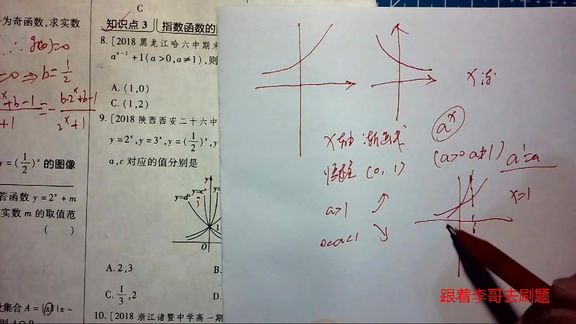 为奇函数,求实数
∴ g(0)=0
=0 ⇒ b=1/2
y=(1/2)^x 的图像
若函数 y=2^x+m
实数 m 的取值范
( )
集合 A={x|x-
C
知识点 3 指数函数的
8. [2018 黑龙江哈六中期末
a^(x-1)+1(a>0,a≠1),则
A. (1,0)
C. (1,2)
9. [2018 陕西西安二十六中
y=2^x,y=3^x,y=(1/2)^x,y
a,c 对应的值分别是
O
A. 2,3
B.
C. 1/3,2
D.
10. [2018 浙江诸暨中学高一期
x 轴
a^x
(a>0 a≠1)
a^1=a
(0,1)
a>1
0<a<1
x=1
跟着李哥去刷题